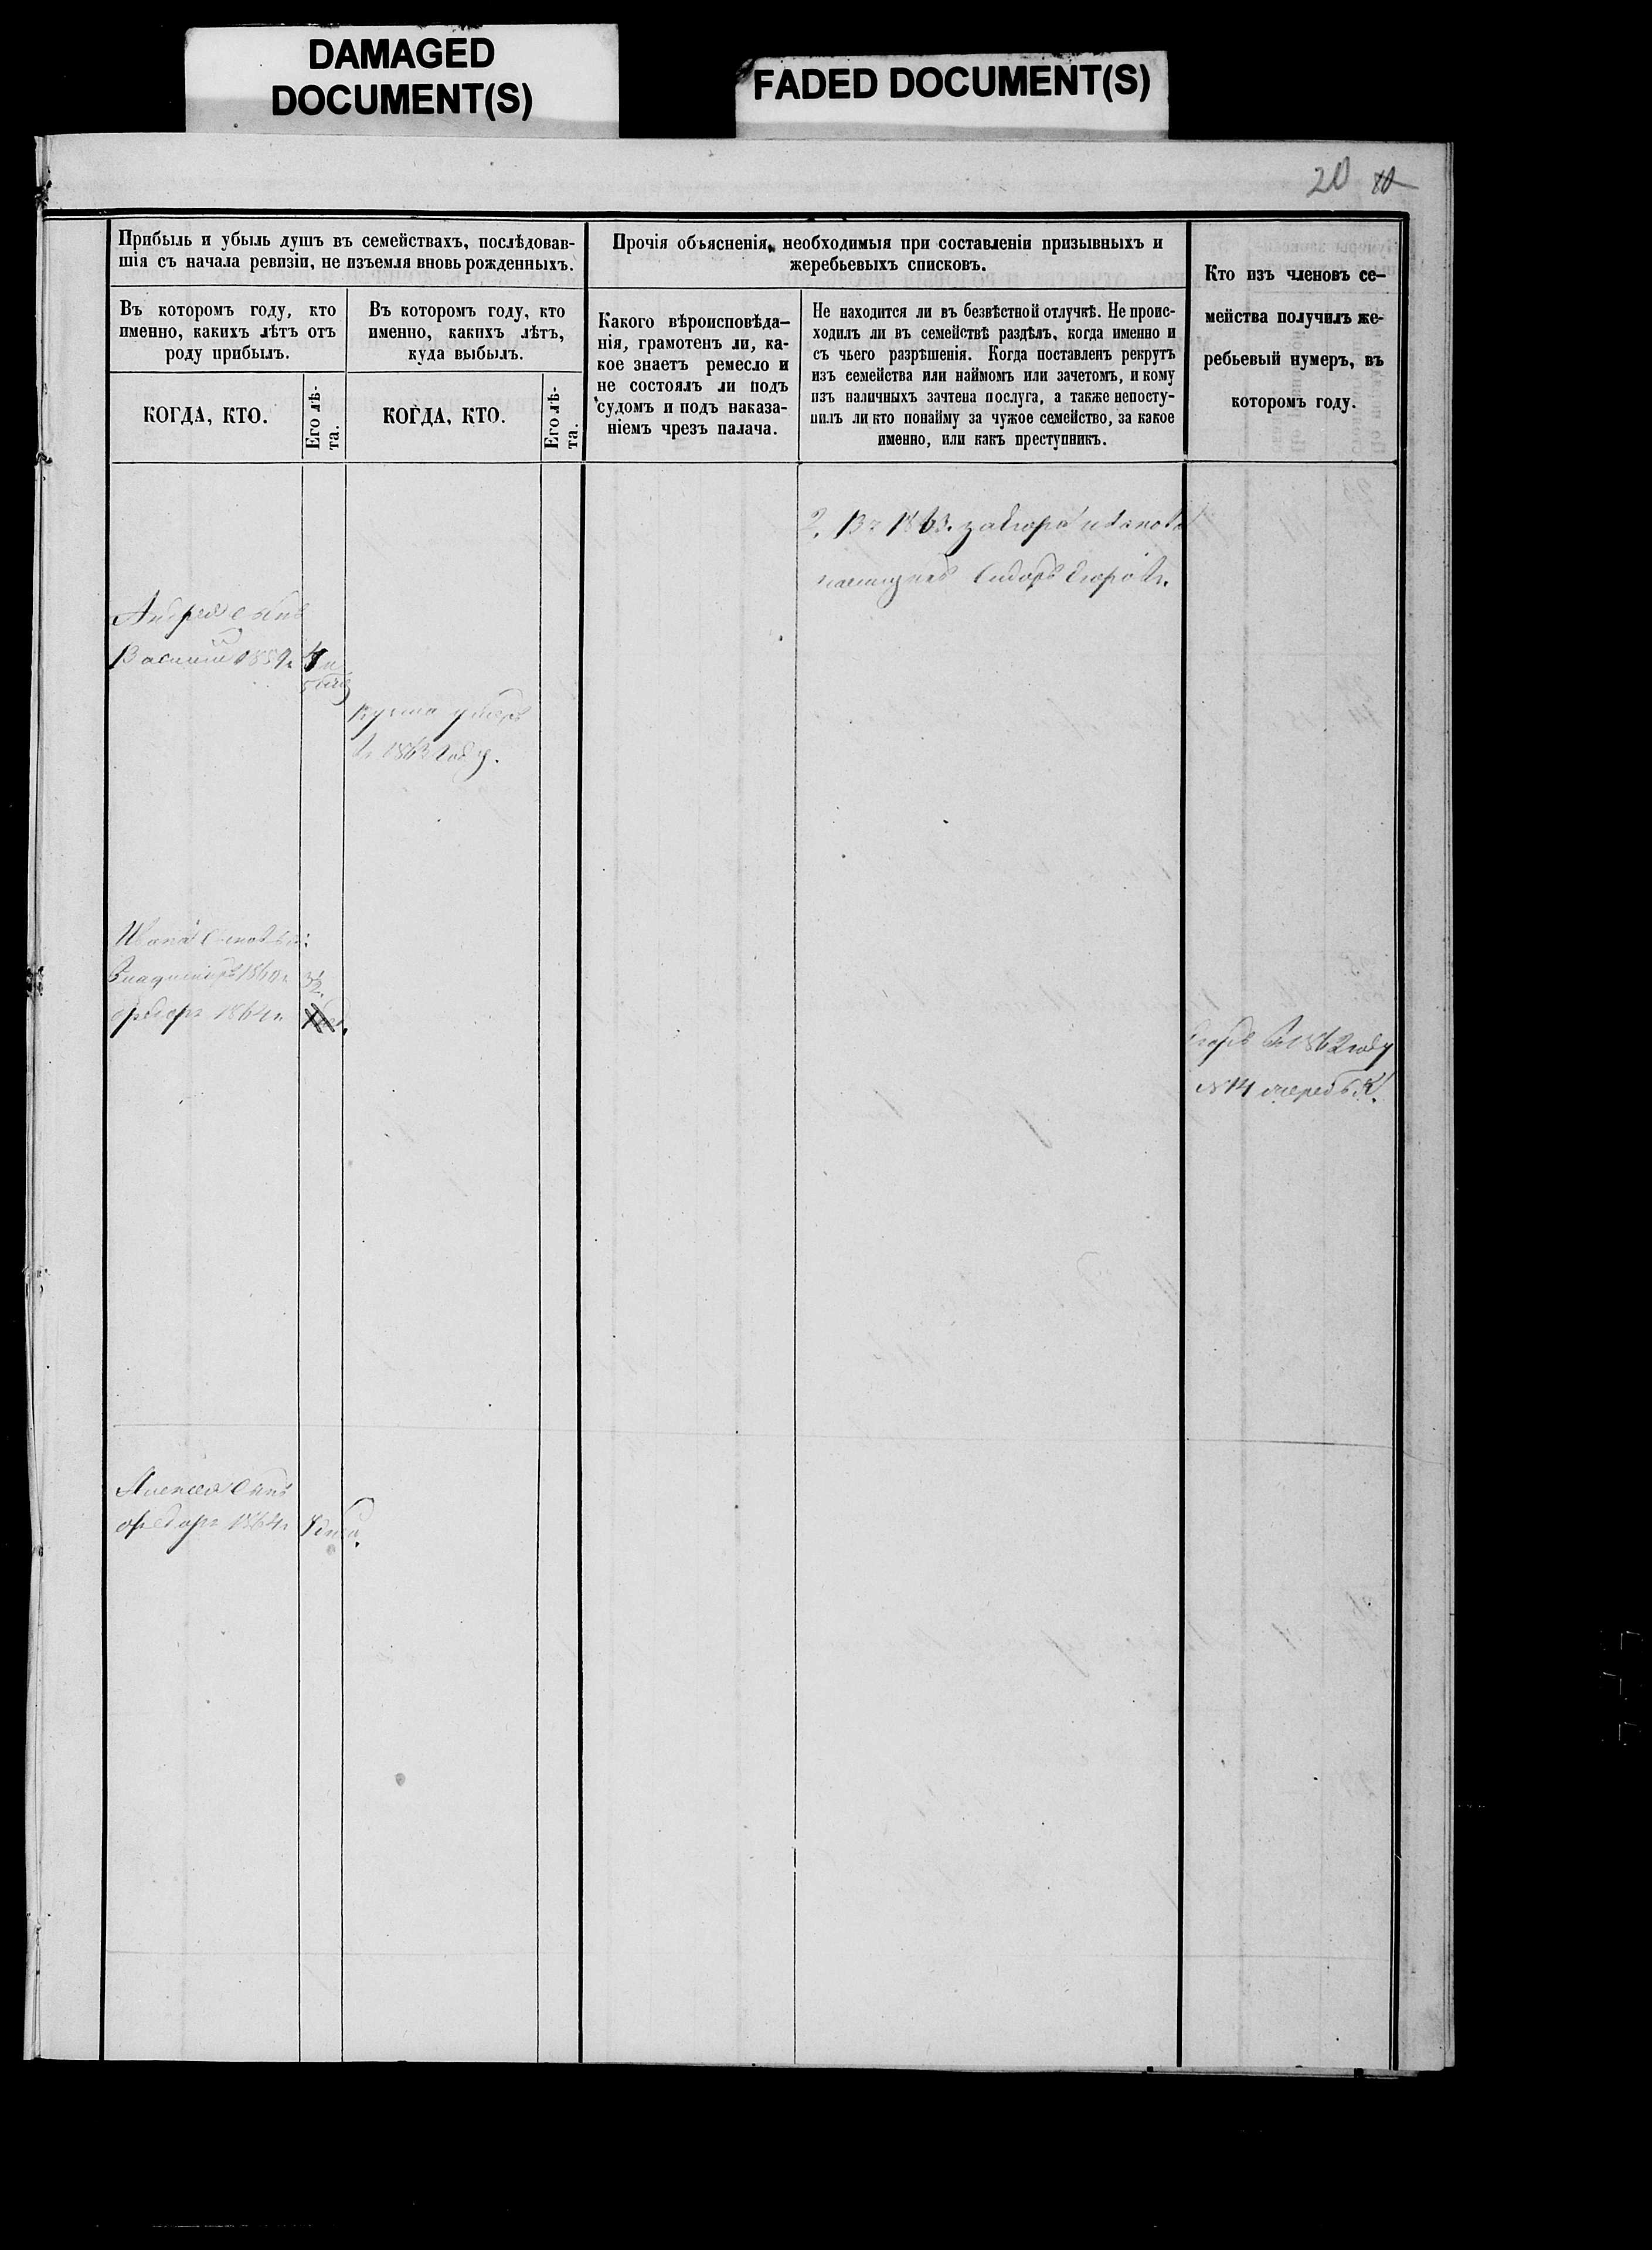 DAMAGED
DOCUMENT(S)
FADED DOCUMENT(S)
20
Прибыль и убыль душъ въ семействахъ, послѣдовав-
шія съ начала ревизіи, не изъемля вновь рожденныхъ.
Прочія объясненія, необходимыя при составленіи призывныхъ и
жеребьевыхъ списковъ.
Кто изъ членовъ се-
мейства получилъ же-
ребьевый нумеръ, въ
которомъ году.
Въ которомъ году, кто
именно, какихъ лѣтъ отъ
роду прибылъ.
Въ которомъ году, кто
именно, какихъ лѣтъ,
куда выбылъ.
Какого вѣроисповѣда-
нія, грамотенъ ли, ка-
кое знаетъ ремесло и
не состоялъ ли подъ
судомъ и подъ наказа-
ніемъ чрезъ палача.
Не находится ли въ безвѣстной отлучкѣ. Не проис-
ходилъ ли въ семействѣ раздѣлъ, когда именно и
съ чьего разрѣшенія. Когда поставленъ рекрутъ
изъ семейства или наймомъ или зачетомъ, и кому
изъ наличныхъ зачтена послуга, а также непосту-
пилъ ли кто понайму за чужое семейство, за какое
именно, или какъ преступникъ.
КОГДА, КТО.
Его лѣ-
та.
КОГДА, КТО.
Его лѣ-
та.
1863. за Егора Иванова
Сидоръ Егоровъ.
Андрея сынъ
Василій 1859
умеръ
въ 1863 году.
Ивана сыновья:
Владиміръ 1860
Ѳедоръ 1864
Егоръ въ 1862 году
№ 14 очередь
Алексея сынъ
Ѳедоръ 1864